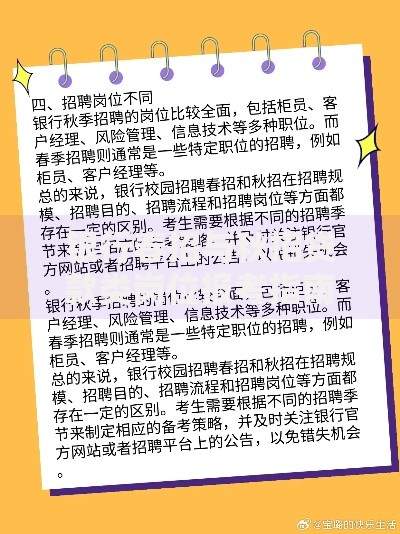 四、招聘岗位不同
银行秋季招聘的岗位比较全面，包括柜员、客
户经理、风险管理、信息技术等多种职位。而
春季招聘则通常是一些特定职位的招聘，例如
柜员、客户经理等。
总的来说，银行校园招聘春招和秋招在招聘规
模、招聘目的、招聘流程和招聘岗位等方面都
存在一定的区别。考生需要根据不同的招聘季
节来制定相应的备考策略，并及时关注银行官
方网站或者招聘平台上的公告，以免错失机会
。
银行秋季招聘的岗位比较全面，包括柜员、客
户经理、风险管理、信息技术等多种职位。而
春季招聘则通常是一些特定职位的招聘，例如
柜员、客户经理等。
总的来说，银行校园招聘春招和秋招在招聘规
模、招聘目的、招聘流程和招聘岗位等方面都
存在一定的区别。考生需要根据不同的招聘季
节来制定相应的备考策略，并及时关注银行官
方网站或者招聘平台上的公告，以免错失机会
。
@宝璐的快乐生活